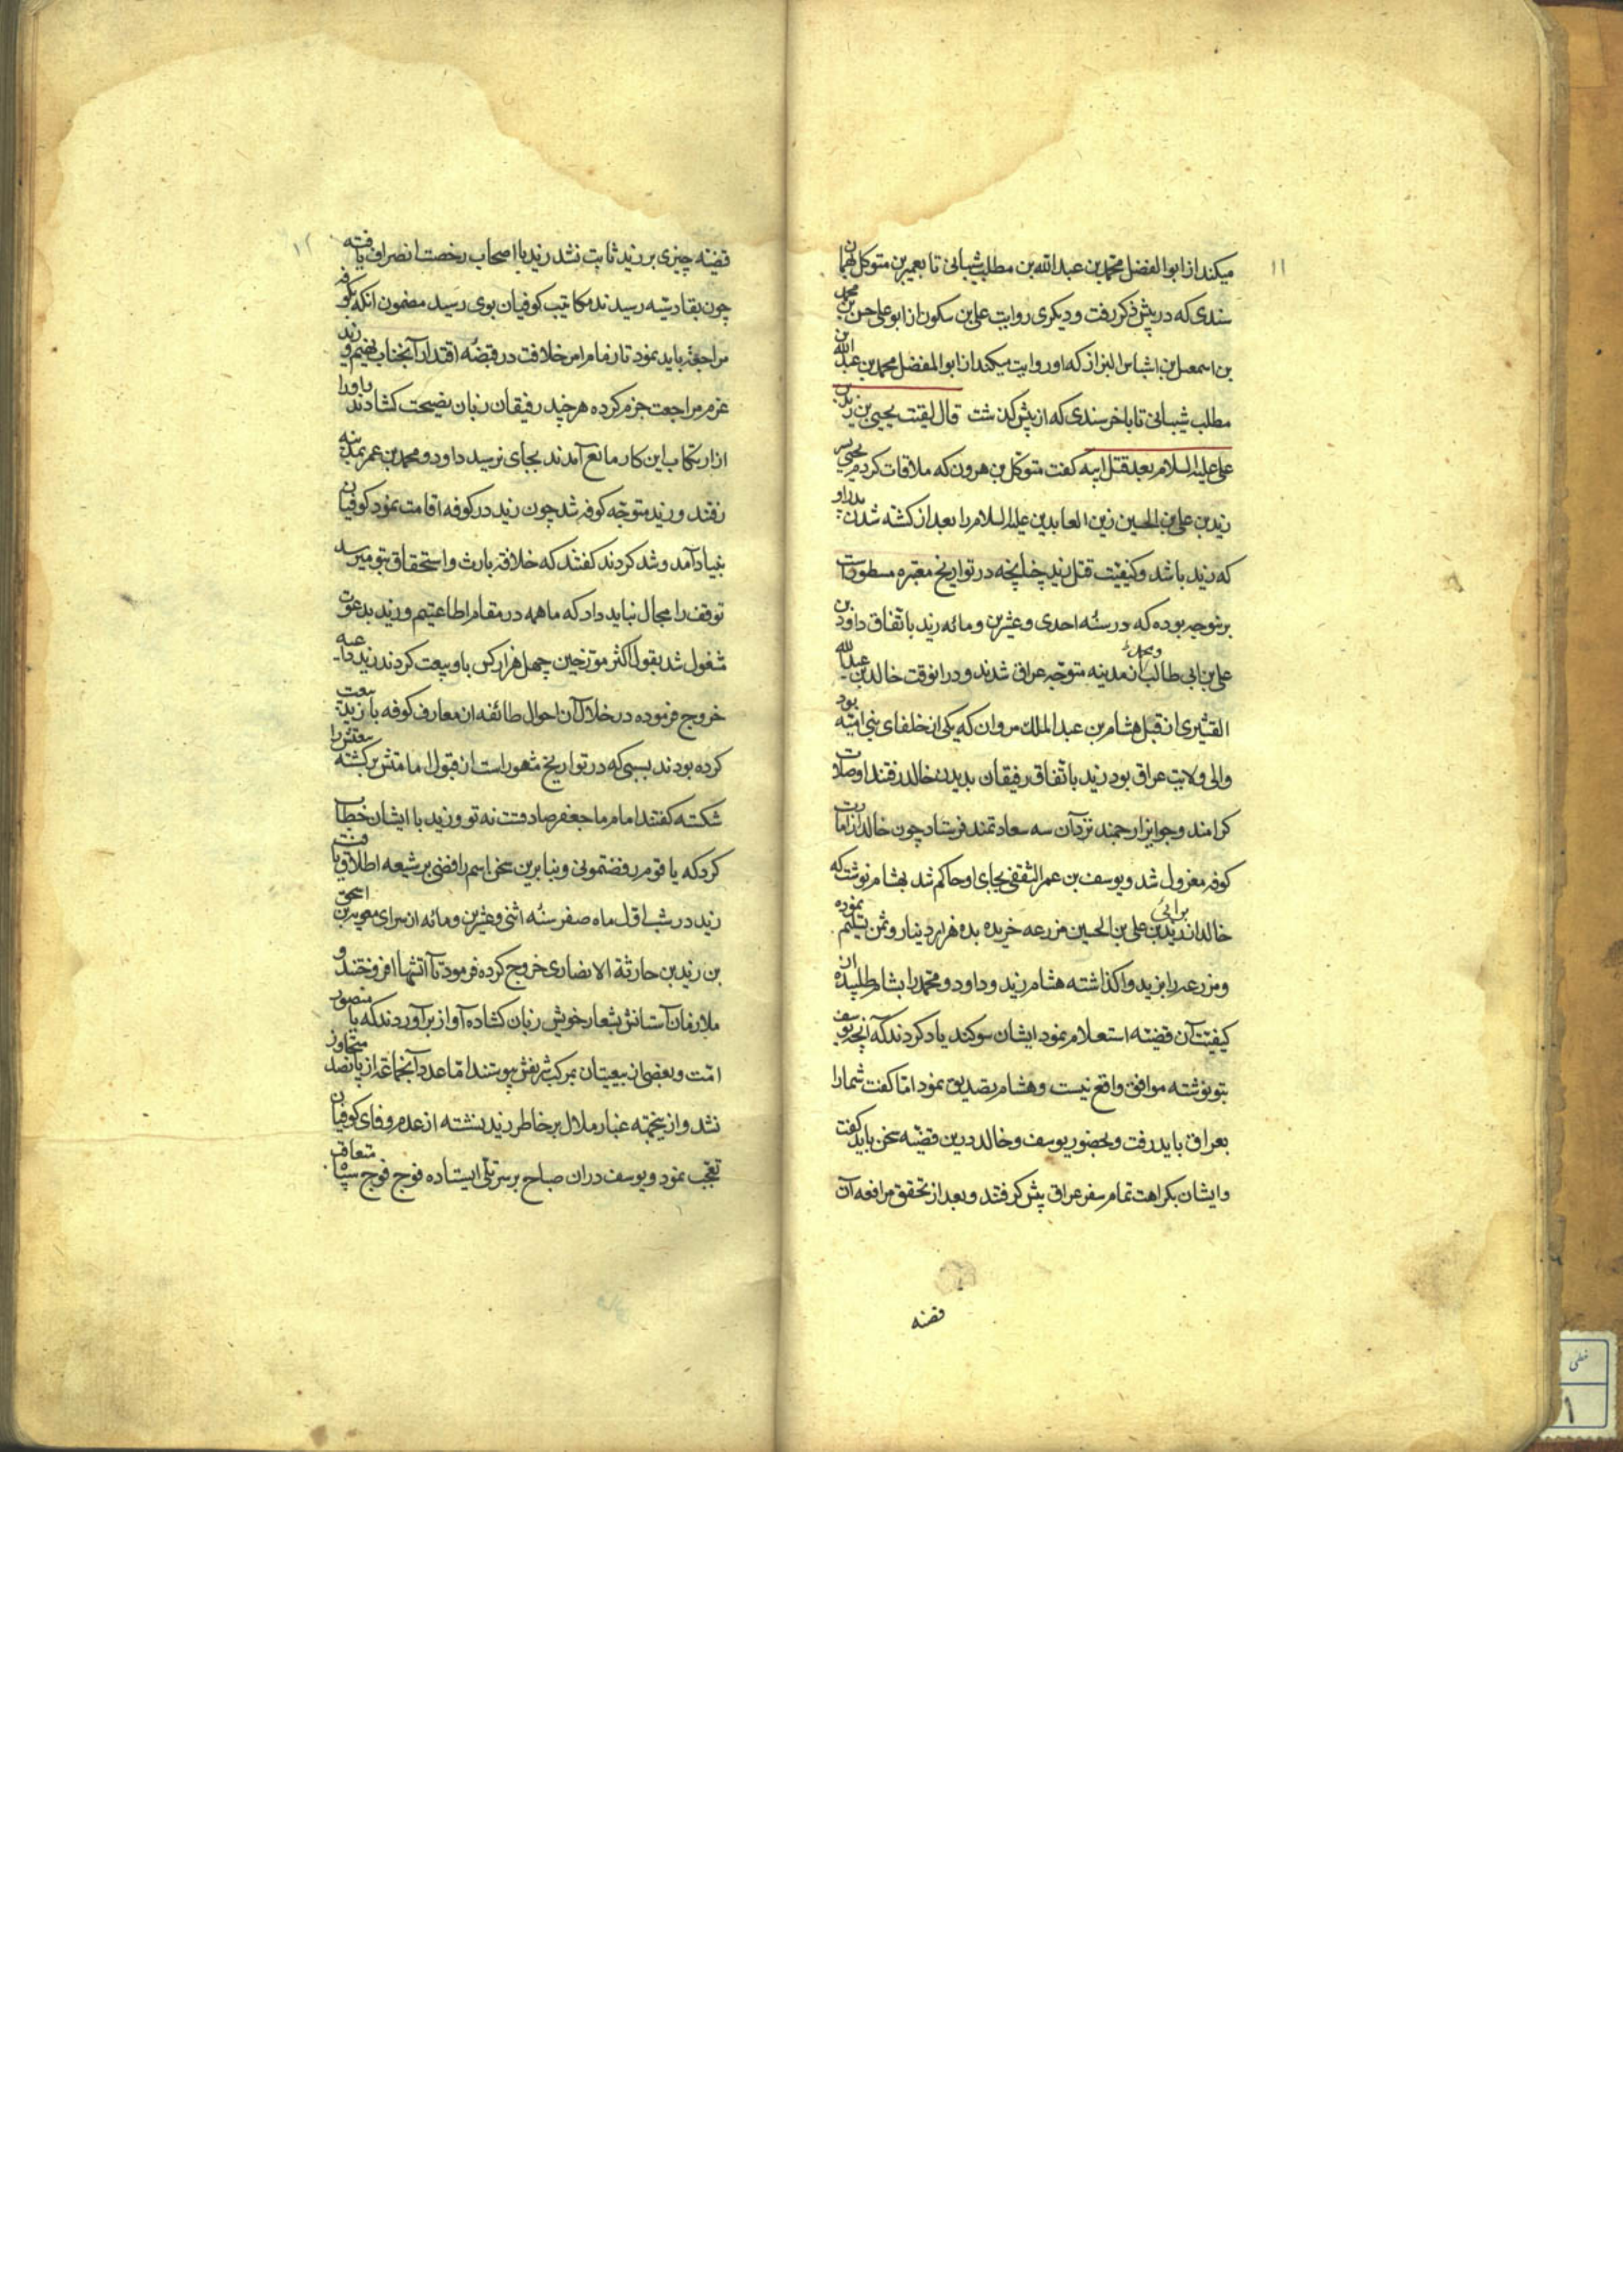 ۱۱
میکند از ابوالفضل محمد بن عبدالله بن مطلب شیبانی تا بعمیر بن متوکل بهمان
سندی که در پیش ذکر رفت و دیکری روایت علی بن سکون از ابو علی حسن بن محمد
بن اسمعیل بن اشناس البزاز که او روایت میکند از ابو المفضل محمد بن عبدالله بن
مطلب شیبانی تا باخر سندی که از پیش کذشت قال لقیت یحیی بن زید بن
علی علیه السلام بعد قتل ابیه کفت متوکل بن هرون که ملاقات کردم یحیی پسر
زید بن علی بن الحسین زین العابدین علیه السلام را بعد از کشته شدن پدر او
که زید باشد و کیفیت قتل زید چنانچه در تواریخ معتبره مسطور است
برینوجه بوده که در سنه احدی و عشرین و مائه زید باتفاق داود بن
علی بن ابی طالب از مدینه متوجه عراق شدند و در انوقت خالد بن عبدالله
و محمد
القشیری از قبل هشام بن عبد الملک مروان که یکی از خلفای بنی امیه بود
والی ولایت عراق بود زید باتفاق رفیقان بدیدن خالد رفتند او صلات
کرامند و جوایز ارجمند نزد آن سه سعادتمند فرستاد چون خالد از امارت
کوفه معزول شد و یوسف بن عمر الثقفی بجای او حاکم شد بهشام نوشت که
خالد از زید بن علی بن الحسین مزرعه خریده بده هزار دینار و ثمن تسلیم نموده
و مزرعه را بزید واکذاشته هشام زید و داود و محمد را بشام طلبیده از
کیفیت آن قضیه استعلام نمود ایشان سوکند یاد کردند که آنچه یوسف
بتو نوشته موافق واقع نیست و هشام تصدیق نمود اما کفت شمارا
بعراق باید رفت و بحضور یوسف و خالد درین قضیه سخن باید کفت
و ایشان بکراهت تمام سفر عراق پیش کرفتند و بعد از تحقق مرافعه آن
قضیه
۱۲
قضیه چیزی بر زید ثابت نشد زید با اصحاب رخصت انصراف یافته
چون بقادسیه رسیدند مکاتیب کوفیان بوی رسید مضمون انکه بکوفه
مراجعت باید نمود تا زمام امر خلافت در قبضه اقتدار آنجناب نهیم و زید
عزم مراجعت جزم کرده هر چند رفیقان زبان نصیحت کشادند و او را
از ارتکاب این کار مانع آمدند بجای نرسید داود و محمد بن عمر بمدینه
رفتند و زید متوجه کوفه شد چون زید در کوفه اقامت نمود کوفیان
بنیاد آمد و شد کردند کفتند که خلافت بارث و استحقاق بتو میرسد
توقف را مجال نباید داد که ما همه در مقام اطاعتیم و زید بدعوت
مشغول شد بقول اکثر مورخین چهل هزار کس باو بیعت کردند زید داعیه
خروج فرموده در خلال آن احوال طائفه از معارف کوفه با زید بیعت
کرده بودند بسببی که در تواریخ مشهور است از قبول امامتش برکشته بیعتش را
شکسته کفتند امام ما جعفر صادقست نه تو و زید با ایشان خطاب
کرد که یا قوم رفضتمونی و بنابرین سخن اسم رافضی بر شیعه اطلاق یافت
زید در شب اول ماه صفر سنه اثنی و عشرین و مائه از سرای معویه بن اسحق
بن زید بن حارثة الانصاری خروج کرده فرمود تا آتشها افروختند و
ملازمان آستانش بشعار خویش زبان کشاده آواز برآوردند که یا منصور
امت و بعضی از بیعتیان بمرکب شریفش پیوستند اما عدد آنجماعه از پانصد متجاوز
نشد و ازینجهته غبار ملال بر خاطر زید نشسته از عدم وفای کوفیان
تعجب نمود و یوسف دران صباح بر سر تلی ایستاده فوج فوج سپاه متعاقب
خطی
۱